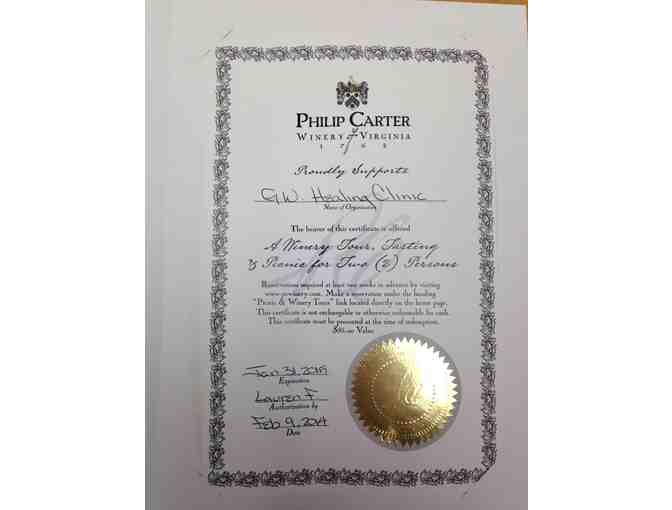 PHILIP CARTER
WINERY of VIRGINIA
1762
Proudly Supports
G.W. Healing Clinic
Name of Organization
The bearer of this certificate is offered
A Winery Tour, Tasting
& Picnic for Two (2) Persons
Reservations required at least two weeks in advance by visiting
www.pcwinery.com. Make a reservation under the heading
"Picnic & Winery Tours" link located directly on the home page.
This certificate is not exchangable or otherwise redeemable for cash.
This certificate must be presented at the time of redemption.
Value
Jan 31, 2015
Expiration
Lauren F
Authorization by
Feb 9, 2014
Date